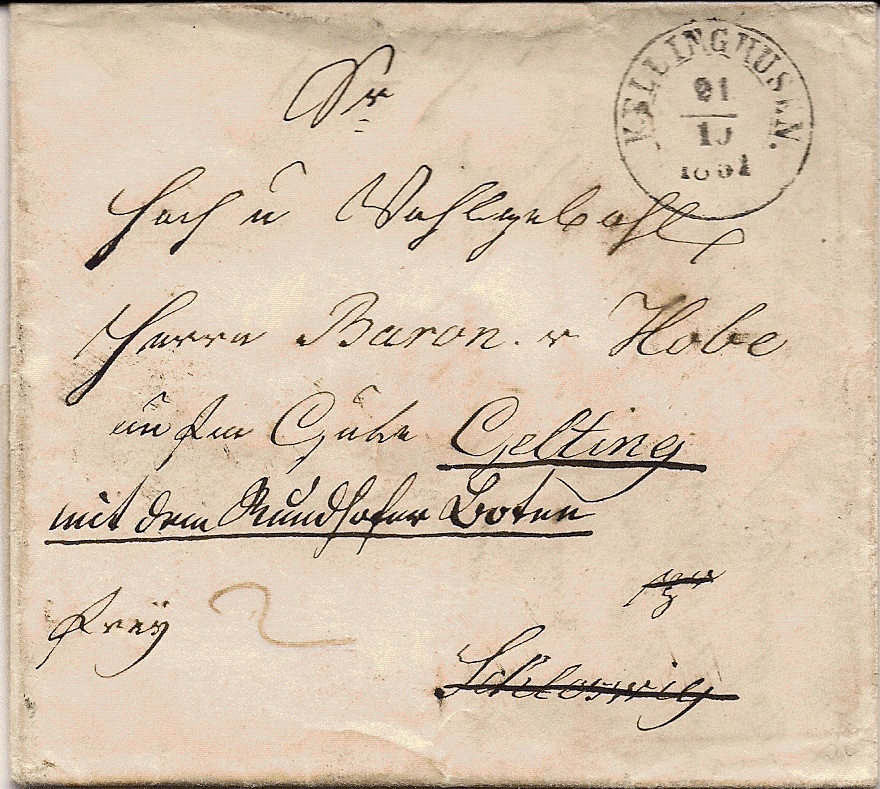 KELLINGHUSEN.
21
10
1851
Sr
Hoch u Wohlgeb
Herrn Baron. v Hobe
Gute Gelting
mit dem Rundhofer Boten
frey 2
Schleswig